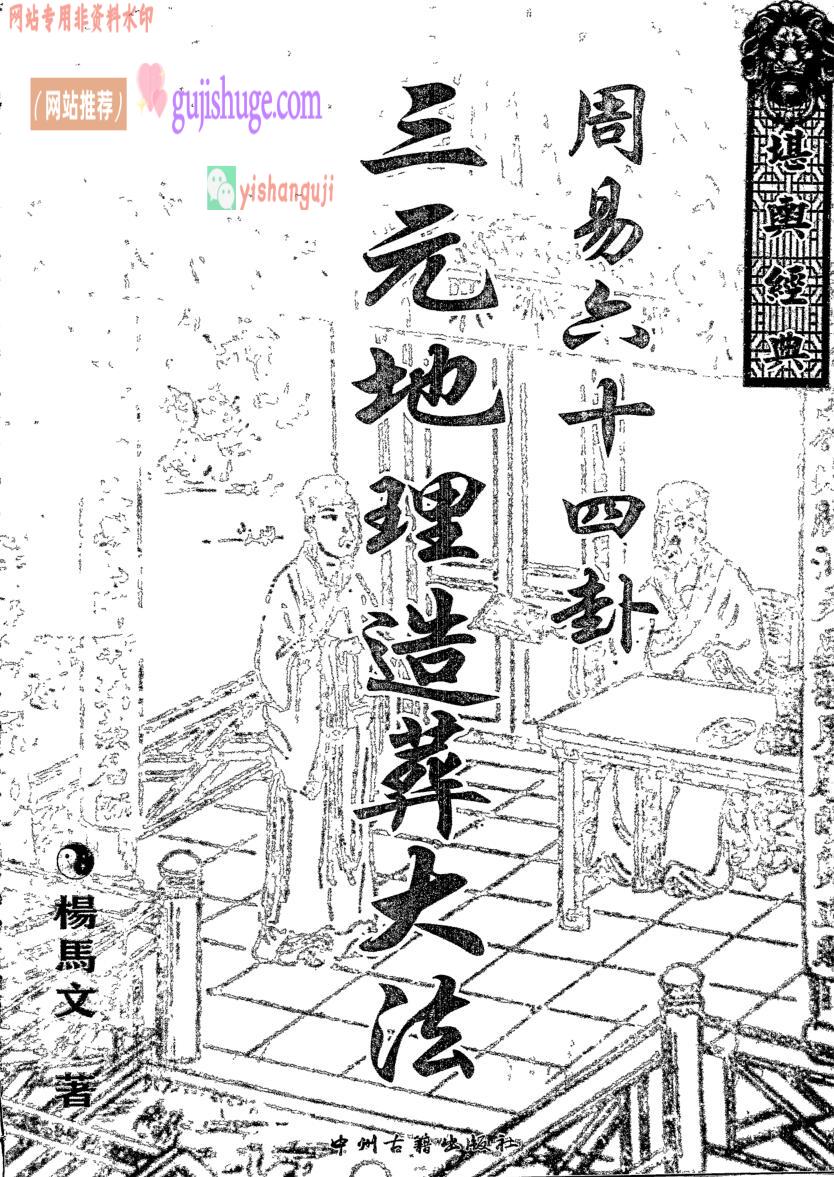 网站专用非资料水印
(网站推荐)
gujishuge.com
yishanguji
堪輿經典
周易六十四卦
三元地理造葬大法
楊馬文 著
中州古籍出版社